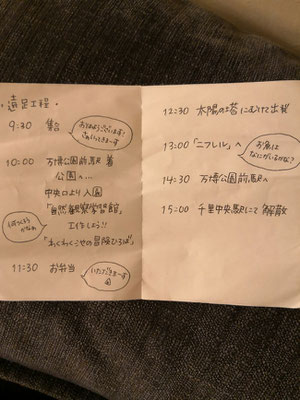 ・遠足工程・
9:30 集合
おはようございます!
いってきまーす
10:00 万博公園前駅 着
公園へ…
中央口より入園
「自然観察学習館」
工作しよう!!
何つくろう
かなぁ
「わくわく池の冒険ひろば」
11:30 お弁当
いただきまーす
12:30 太陽の塔にむけて出発
13:00 「ニフレル」へ
お魚は
なにがいるかな?
14:30 万博公園前駅へ
15:00 千里中央駅にて解散